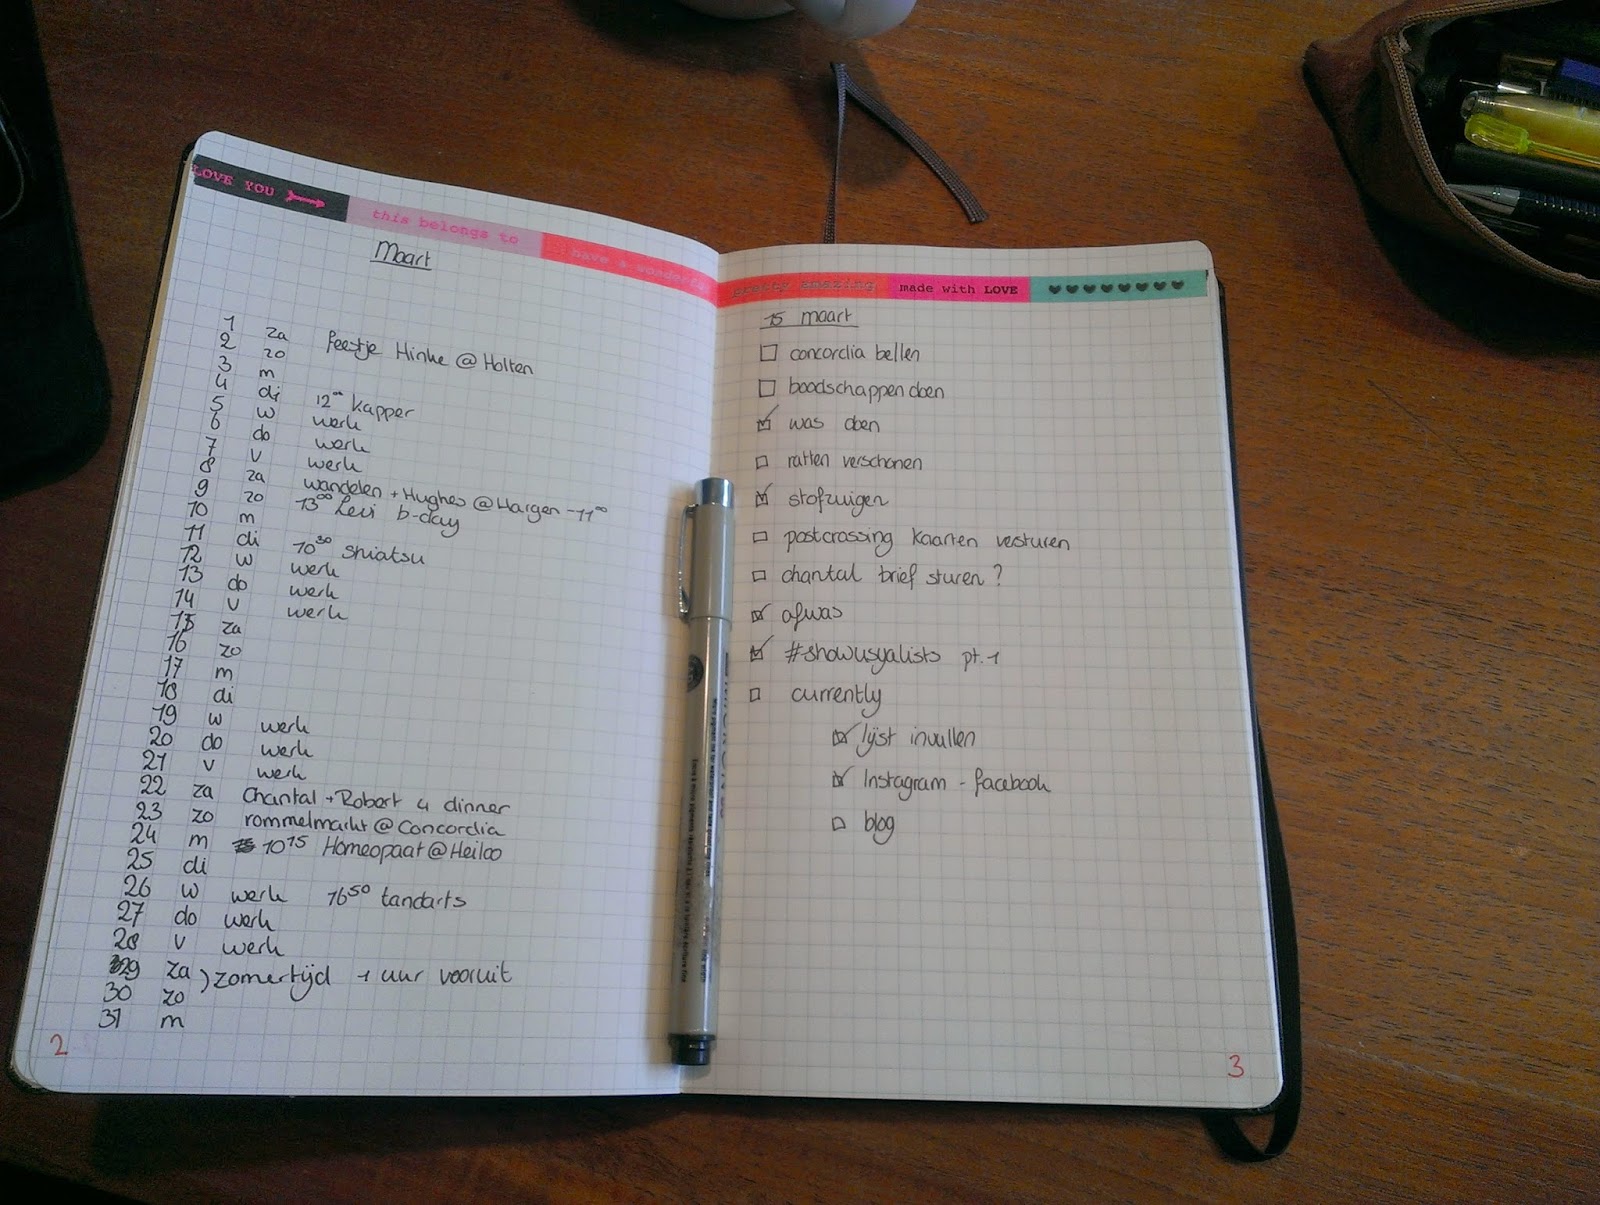 LOVE YOU
this belongs to
have a wonderful
Maart
1 za Feestje Hinke @ Holten
2 zo
3 m
4 di 12⁰⁰ kapper
5 w werk
6 do werk
7 v werk
8 za wandelen + Hughes @ Hargen - 11⁰⁰
9 zo 13⁰⁰ Levi b-day
10 m
11 di 10³⁰ shiatsu
12 w werk
13 do werk
14 v werk
15 za
16 zo
17 m
18 di
19 w werk
20 do werk
21 v werk
22 za Chantal + Robert 4 dinner
23 zo rommelmarkt @ Concordia
24 m 10¹⁵ Homeopaat @ Heiloo
25 di
26 w werk 16⁵⁰ tandarts
27 do werk
28 v werk
29 za ) zomertijd 1 uur vooruit
30 zo
31 m
2
pretty amazing
made with LOVE
15 maart
☐ concordia bellen
☐ boodschappen doen
☑ was doen
☐ ratten verschonen
☑ stofzuigen
☐ postcrossing kaarten versturen
☐ chantal brief sturen?
☑ afwas
☑ #showusyalists pt.1
☐ currently
☑ lijst invullen
☑ Instagram - facebook
☐ blog
3